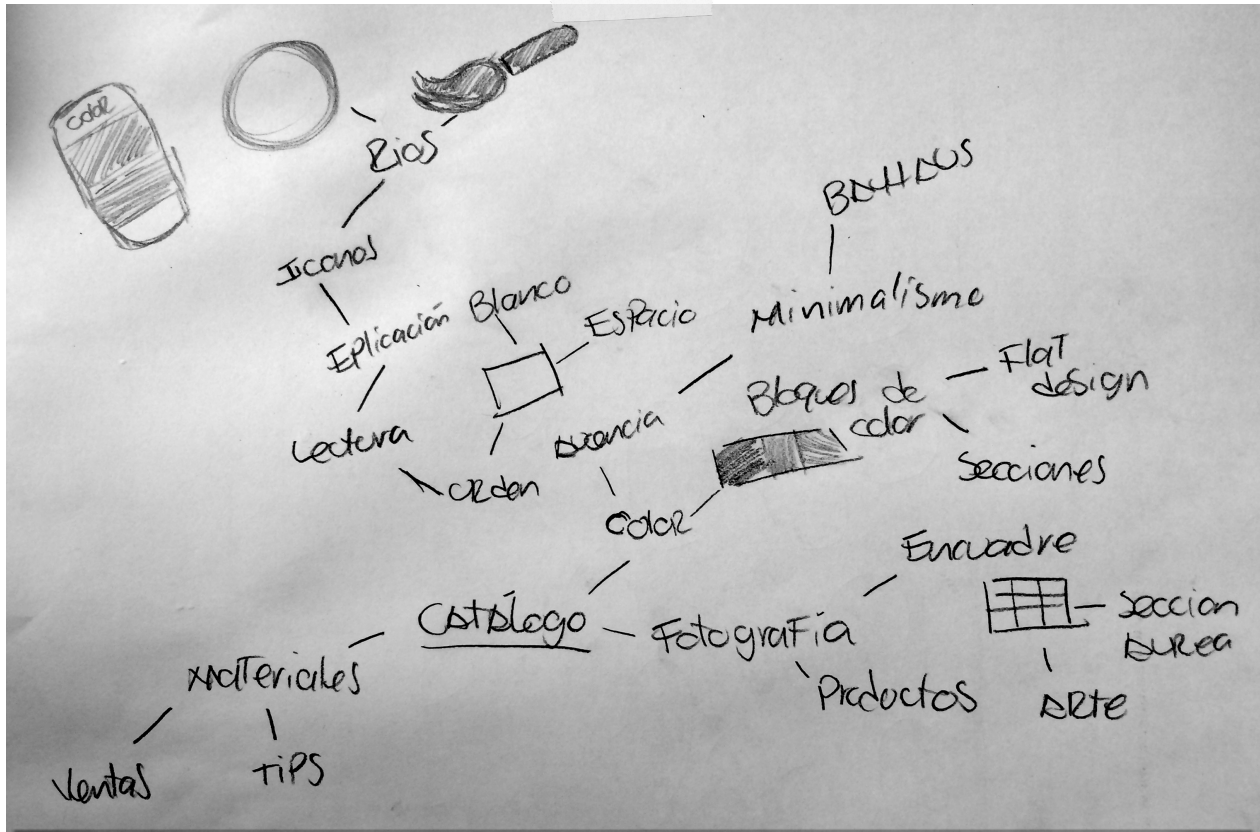 color
Rios
BAHAUS
Iconos
Minimalismo
Eplicación
Blanco
Espacio
Flat
design
Bloques de
color
Lectura
Ausencia
Secciones
orden
Color
Encuadre
Catálogo
Fotografía
seccion
aurea
Materiales
Productos
Arte
Ventas
TiPS